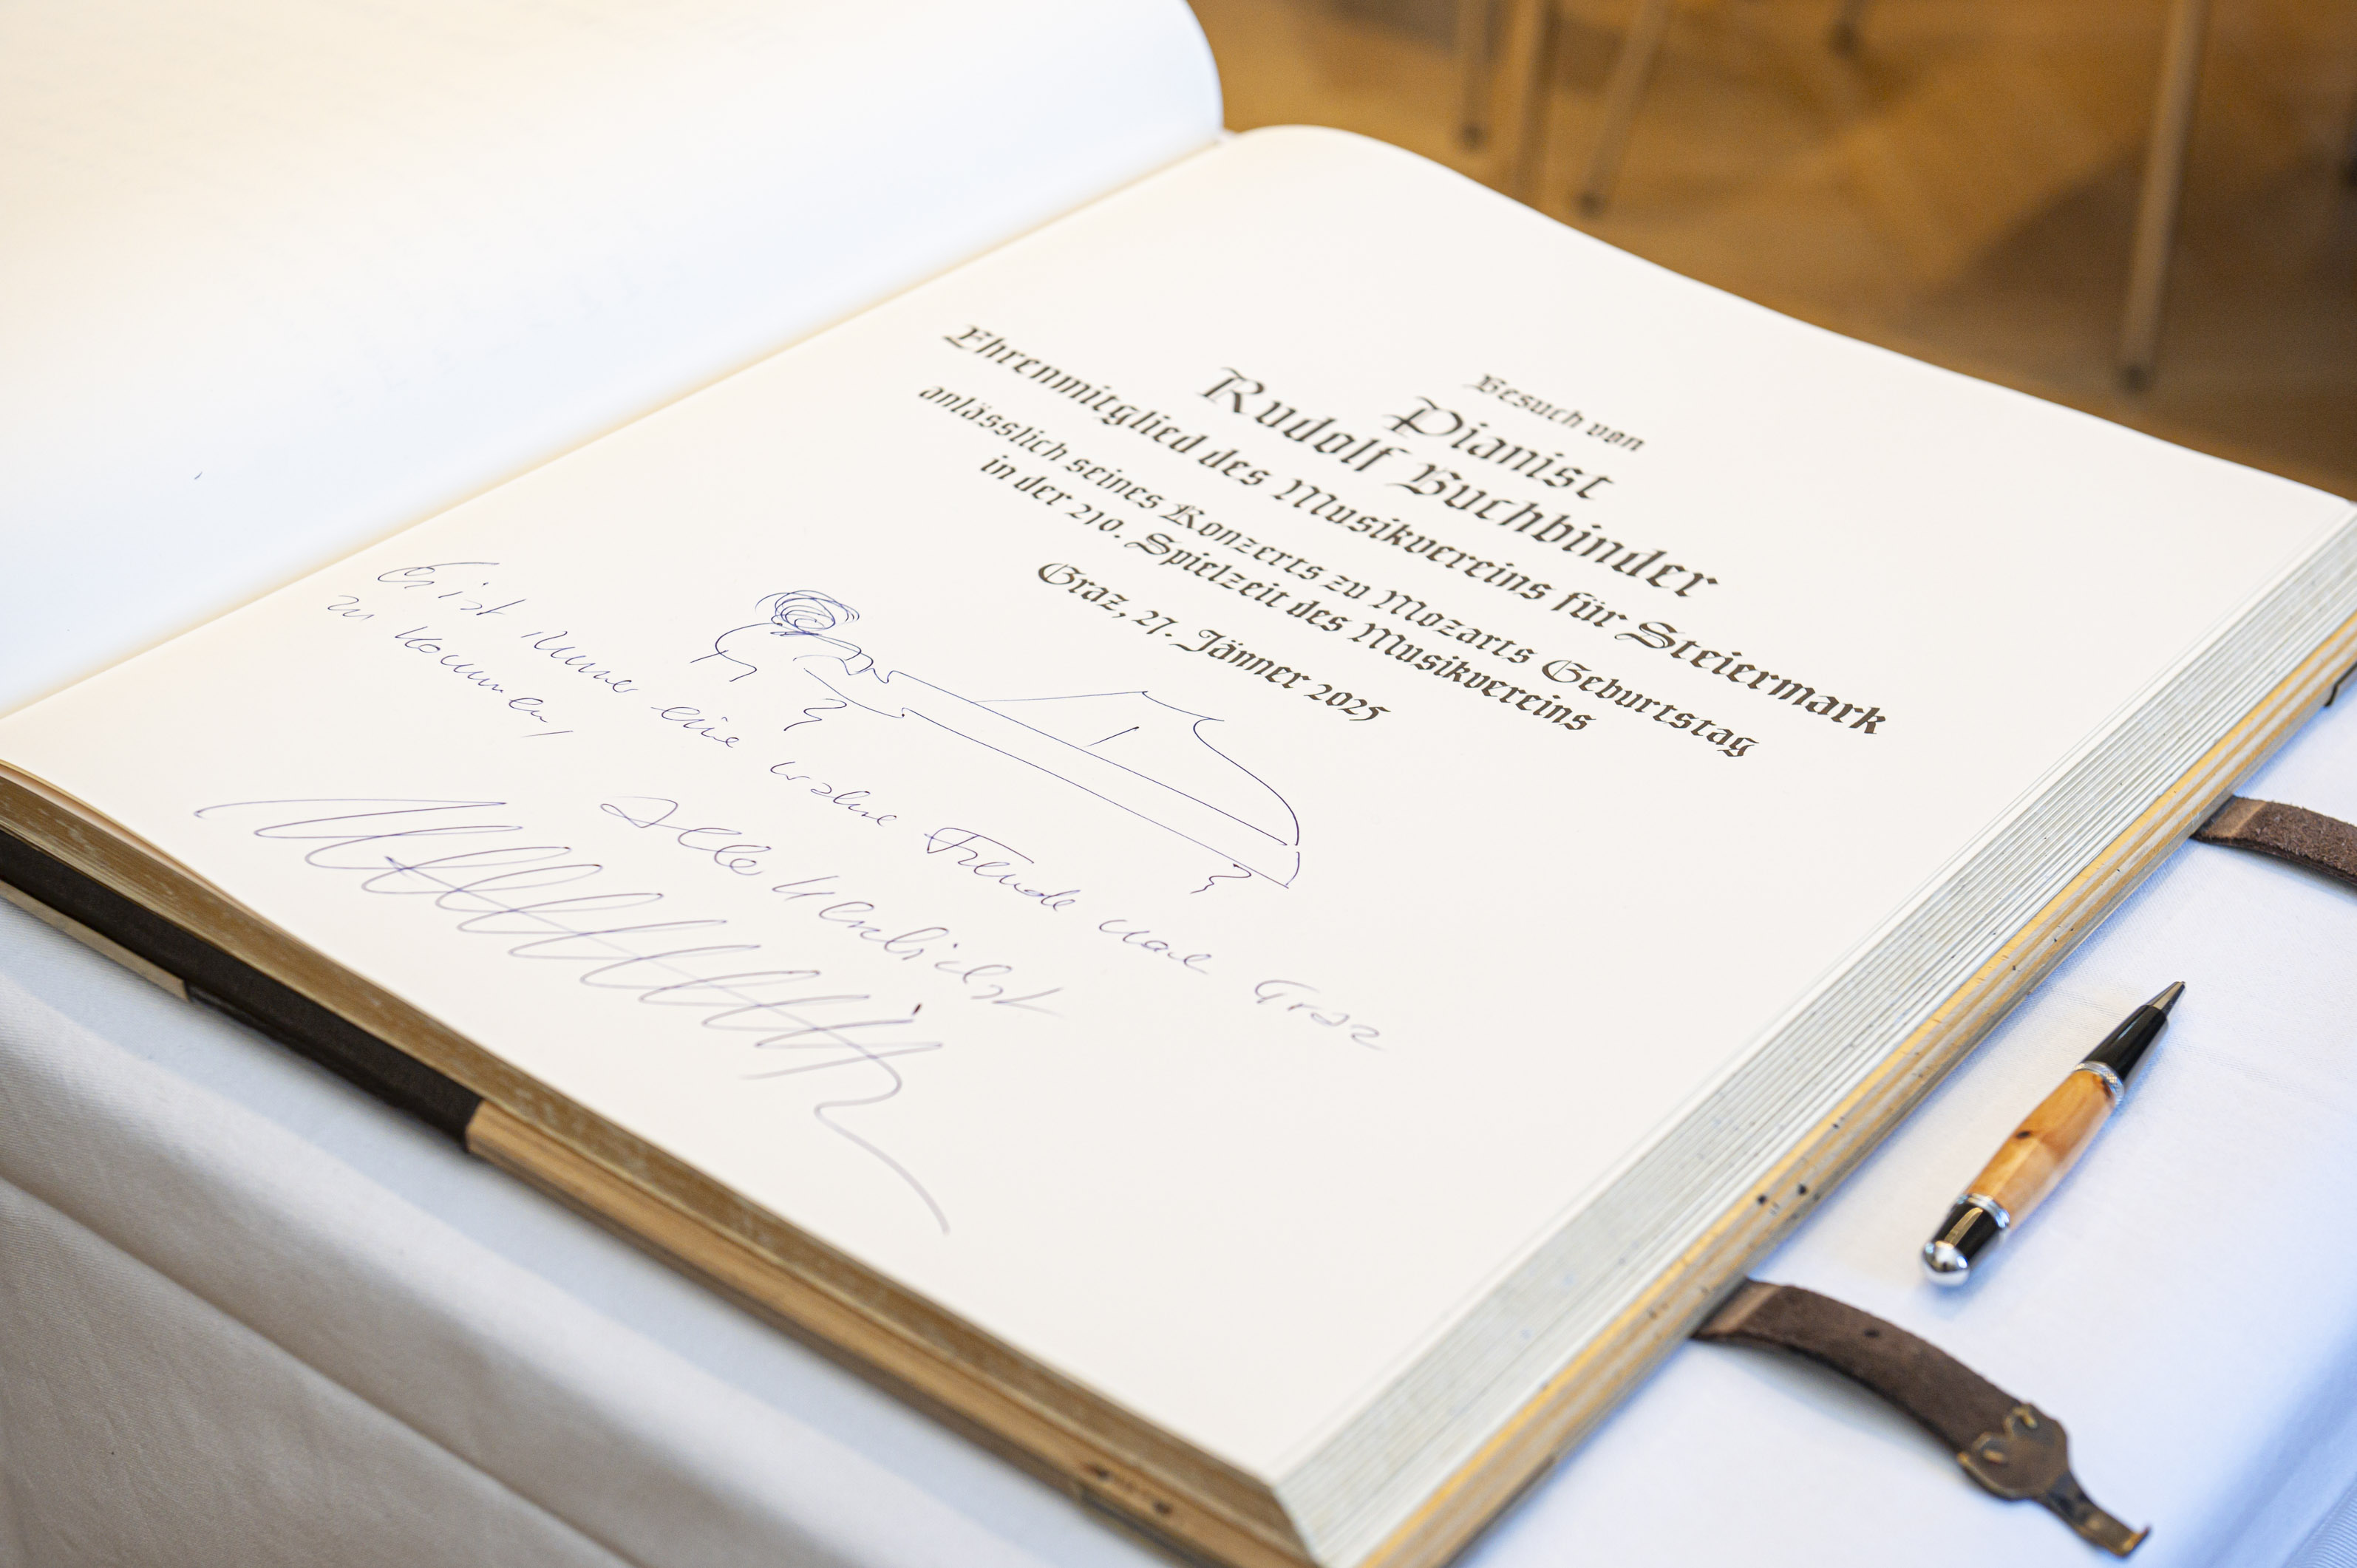 Besuch von
Pianist
Rudolf Buchbinder
Ehrenmitglied des Musikvereins für Steiermark
anlässlich seines Konzerts zu Mozarts Geburtstag
in der 210. Spielzeit des Musikvereins
Graz, 27. Jänner 2025
Es ist immer eine wahre Freude nach Graz
zu kommen,
Alles Herzlichst